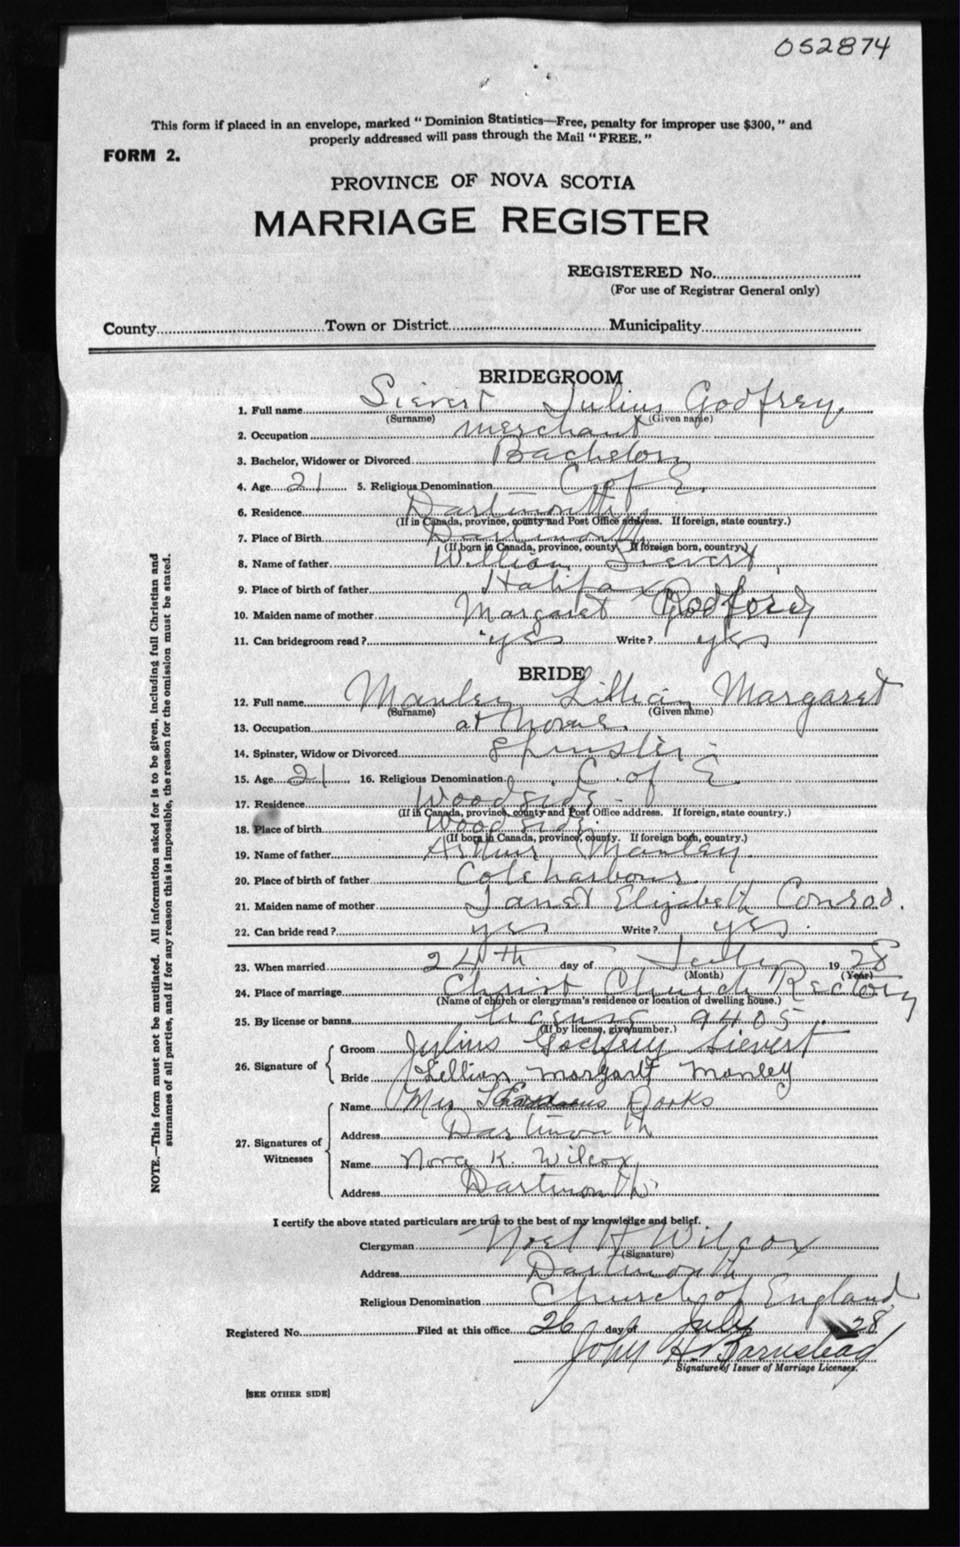 052874
This form if placed in an envelope, marked "Dominion Statistics—Free, penalty for improper use $300," and
properly addressed will pass through the Mail "FREE."
FORM 2.
PROVINCE OF NOVA SCOTIA
MARRIAGE REGISTER
REGISTERED No.
(For use of Registrar General only)
County Town or District Municipality
BRIDEGROOM
1. Full name Sievert Julius Godfrey
(Surname) (Given name)
2. Occupation merchant
3. Bachelor, Widower or Divorced Bachelor
4. Age 21 5. Religious Denomination C of E.
6. Residence Dartmouth
(If in Canada, province, county and Post Office address. If foreign, state country.)
7. Place of Birth Dartmouth
(If born in Canada, province, county. If foreign born, country.)
8. Name of father William Sievert
9. Place of birth of father Halifax
10. Maiden name of mother Margaret
11. Can bridegroom read? yes Write? yes
BRIDE
12. Full name Manley Lillian Margaret
(Surname) (Given name)
13. Occupation at home
14. Spinster, Widow or Divorced Spinster
15. Age 21 16. Religious Denomination C of E.
17. Residence Woodside
(If in Canada, province, county and Post Office address. If foreign, state country.)
18. Place of birth Woodside
(If born in Canada, province, county. If foreign born, country.)
19. Name of father Arthur Manley
20. Place of birth of father Cole harbour
21. Maiden name of mother Janet Elizabeth Conrad.
22. Can bride read? yes Write? yes.
23. When married 24th day of July 1928
(Month) (Year)
24. Place of marriage Christ Church Rectory
(Name of church or clergyman's residence or location of dwelling house.)
25. By license or banns license 9405.
(If by license, give number.)
26. Signature of
Groom Julius Godfrey Sievert
Bride Lillian Margaret Manley
27. Signatures of Witnesses
Name Mrs Dorks
Address Dartmouth
Name Nora K. Wilcox
Address Dartmouth
I certify the above stated particulars are true to the best of my knowledge and belief.
Clergyman Noel H Wilcox
(Signature)
Address Dartmouth
Religious Denomination Church of England
Registered No. Filed at this office 26 day of July 28
John H. Barnstead
Signature of Issuer of Marriage Licenses.
[SEE OTHER SIDE]
NOTE.—This form must not be mutilated. All information asked for is to be given, including full Christian and
surnames of all parties, and if for any reason this is impossible, the reason for the omission must be stated.